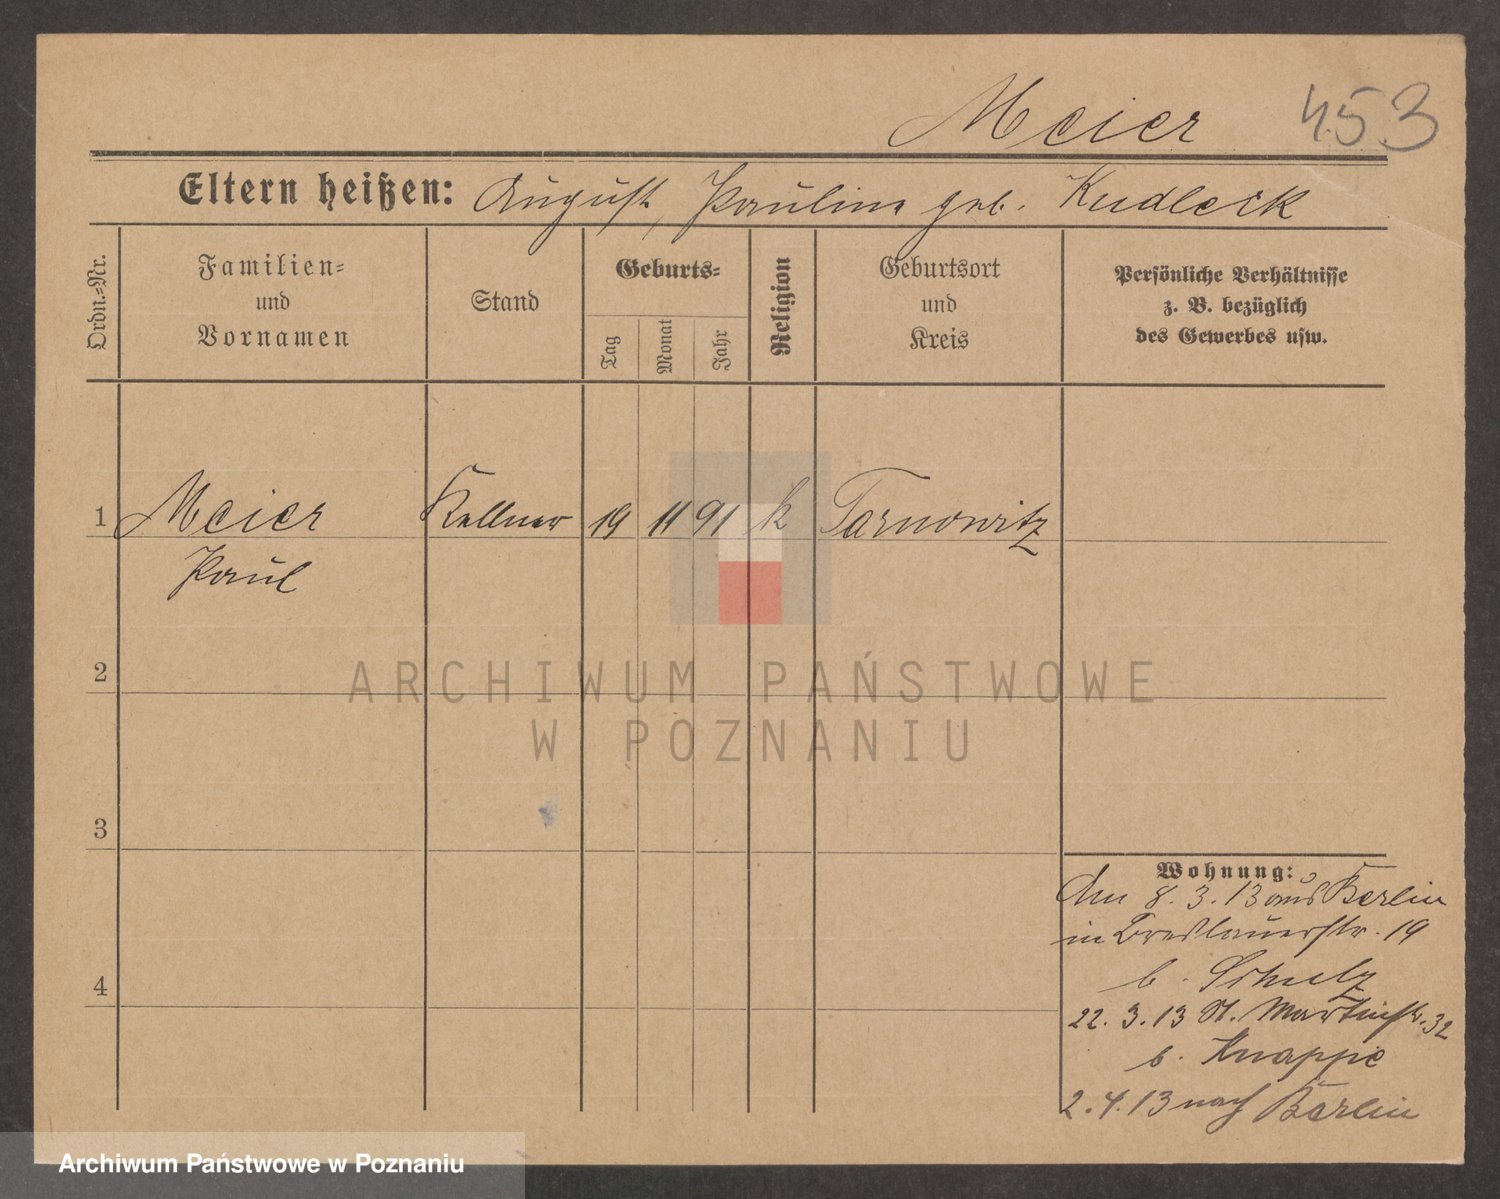 Meier 453
Eltern heißen: August, Pauline geb. Kudleck
Ordn.-Nr.
Familien-
und
Vornamen
Stand
Geburts-
Tag
Monat
Jahr
Religion
Geburtsort
und
Kreis
Persönliche Verhältnisse
z. B. bezüglich
des Gewerbes usw.
1 Meier Kellner 19 11 91 k Tarnowitz
Paul
2
3
4
Wohnung:
Am 8.3.13 aus Berlin
in Breslauerstr. 19
b. Schulz
22.3.13 St. Martinstr. 32
b. Knappe
2.4.13 nach Berlin
ARCHIWUM PAŃSTWOWE
W POZNANIU
Archiwum Państwowe w Poznaniu